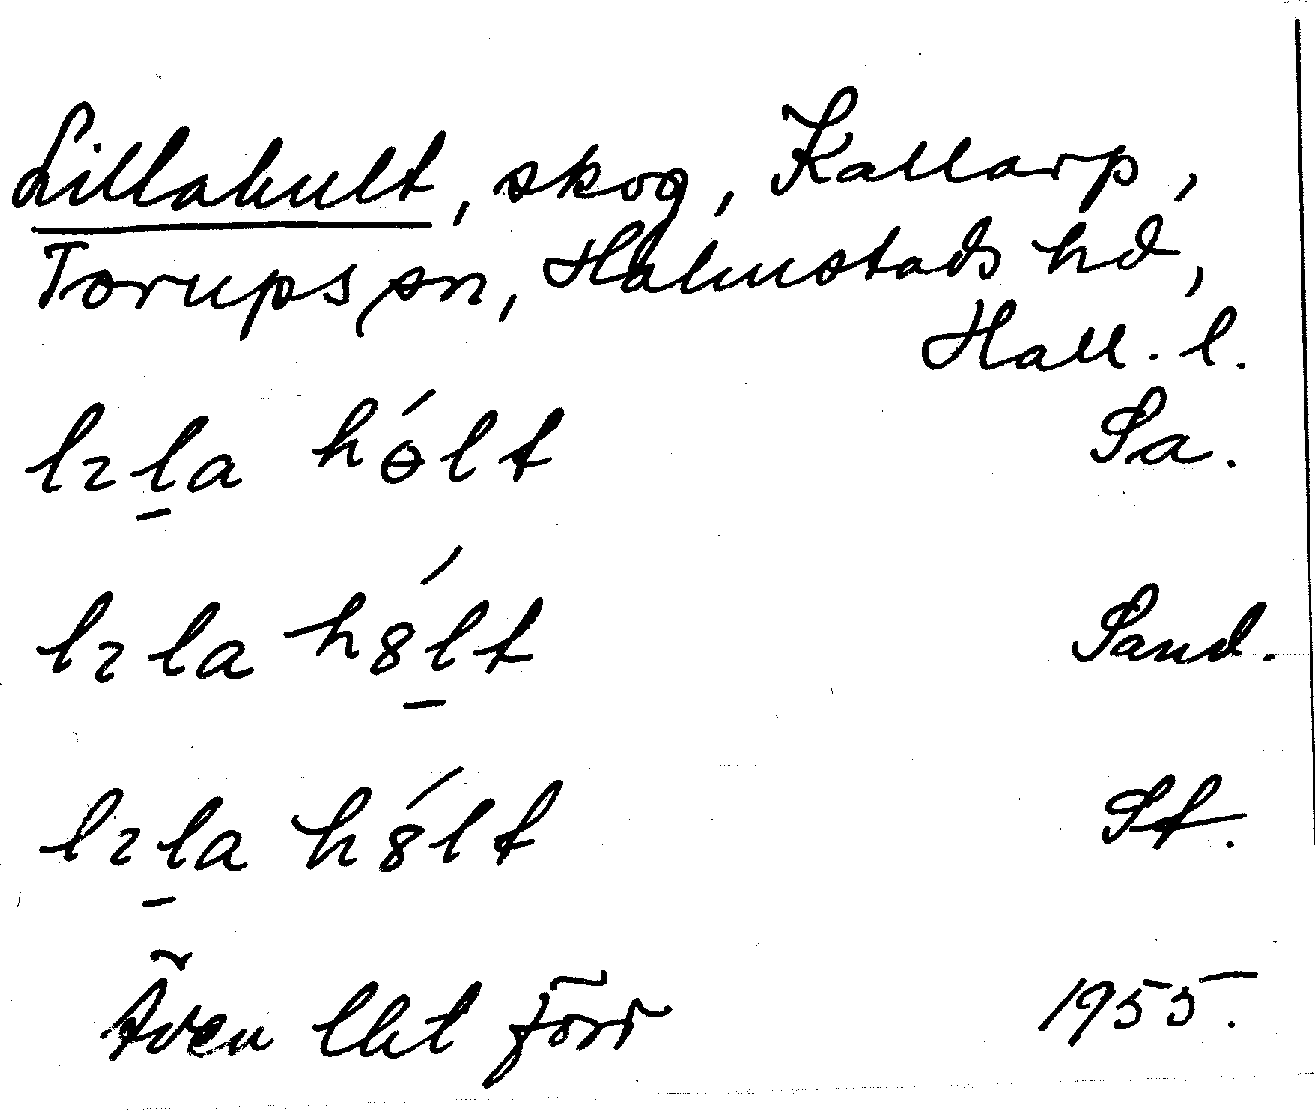 Lillahult, skog, Kallarp,
Torups sn, Halmstads hd,
Hall. l.
lɪla hɵ́lt Sa.
lɪla hȣ́lt Sand.
lɪla hȣ́lt St.
Även lht förr 1955.